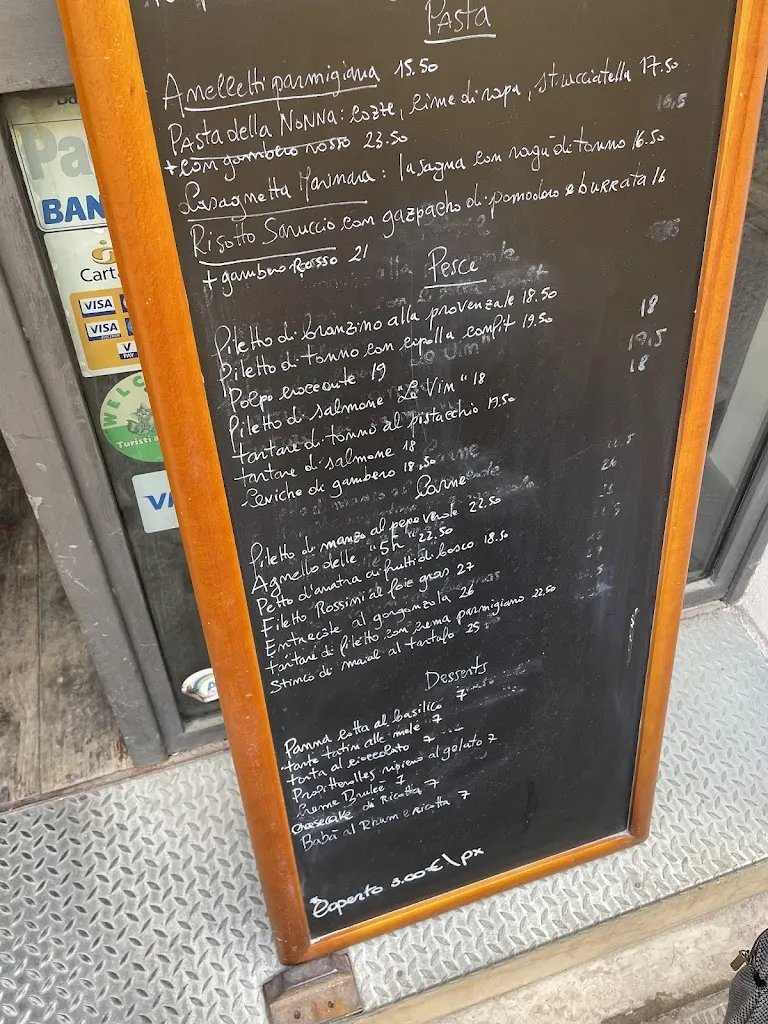 Pasta
Anelletti parmigiana 15.50
Pasta della Nonna: cozze, cime di rapa, stracciatella 17.50
+ con gambero rosso 23.50
Lasagnetta Marinara: lasagna con ragù di tonno 16.50
Risotto Sanuccio con gazpacho di pomodoro e burrata 16
+ gambero Rosso 21
Pesce
Filetto di branzino alla provenzale 18.50
Filetto di tonno con cipolla confit 19.50
Polpo croccante 19
Filetto di salmone "Le Vin" 18
tartare di tonno al pistacchio 19.50
tartare di salmone 18
Ceviche di gambero 18.50
Carne
Filetto di manzo al pepe verde 22.50
Agnello delle "5h" 22.50
Petto d'anatra ai frutti di bosco 18.50
Filetto Rossini al foie gras 27
Entrecote al gorgonzola 26
tartare di filetto con crema parmigiano 22.50
Stinco di maial al tartufo 25
Desserts
Panna cotta al basilico 7
tarte tatin alle mele 7
torta al cioccolato 7
Profitterolles ripieno al gelato 7
Creme Brulee 7
cheesecake di Ricotta 7
Babà al Rhum e ricotta 7
Coperto 3.00€\px
Pa
BAN
Cart
VISA
VISA
V PAY
WELC
Turisti
VI